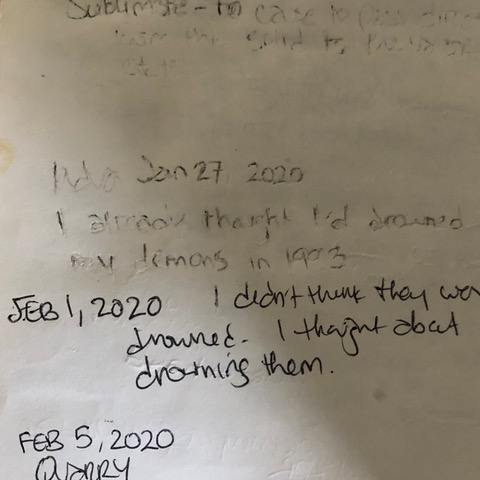 Sublimate - to case to pass direc
from the solid to the
state
Jan 27 2020
I already thought I'd drowned
my demons in 1993
FEB 1, 2020 I didn't think they wer
drowned. I thought about
drowning them.
FEB 5, 2020
QUARRY